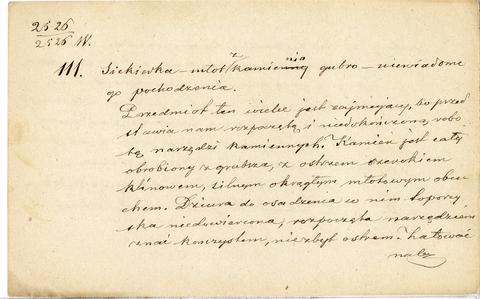 2526
2526 W.
111. Siekierka – młot z kamienia gubro – niewiadome
go pochodzenia.
Przedmiot ten wielce jest zajmujący, bo przed
stawia nam rozpoczętą i niedokończoną robo
tę narzędzi kamiennych. Kamień jest cały
obrobiony z grubsza, z ostrzem szerokiem
klinowem, silnym okrągłym młotowym obu
chem. Dziura do osadzenia w nim topory
ska niedowiercona, rozpoczęta narzędziem
znać kończystem, nie zbyt ostrem. Żałować
należ